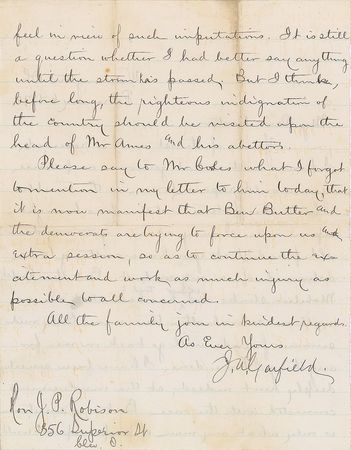 feel in view of such imputations. It is still
a question whether I had better say anything
until the storm has passed. But I think,
before long, the righteous indignation of
the country should be visited upon the
head of Mr Ames and his abettors.
Please say to Mr Coles what I forgot
to mention in my letter to him today, that
it is now manifest that Ben Butler and
the democrats are trying to force upon us an
Extra session, so as to continue the ex
citement and work as much injury as
possible to all concerned.
All the family join in kindest regards.
As Ever Yours
J. A. Garfield.
Hon J. P. Robison
356 Superior St
Clev. O.